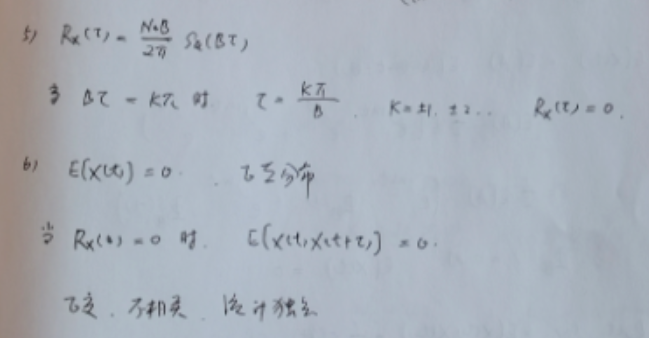 5) Rx(τ) = N0B/2π Sa(Bτ)
当 Bτ = kπ 时 τ = kπ/B . K=±1, ±2... Rx(τ)=0.
6) E[X(t)] = 0. 正态分布
当 Rx(τ)=0 时. E[X(t)X(t+τ)] = 0.
正交. 不相关. 统计独立